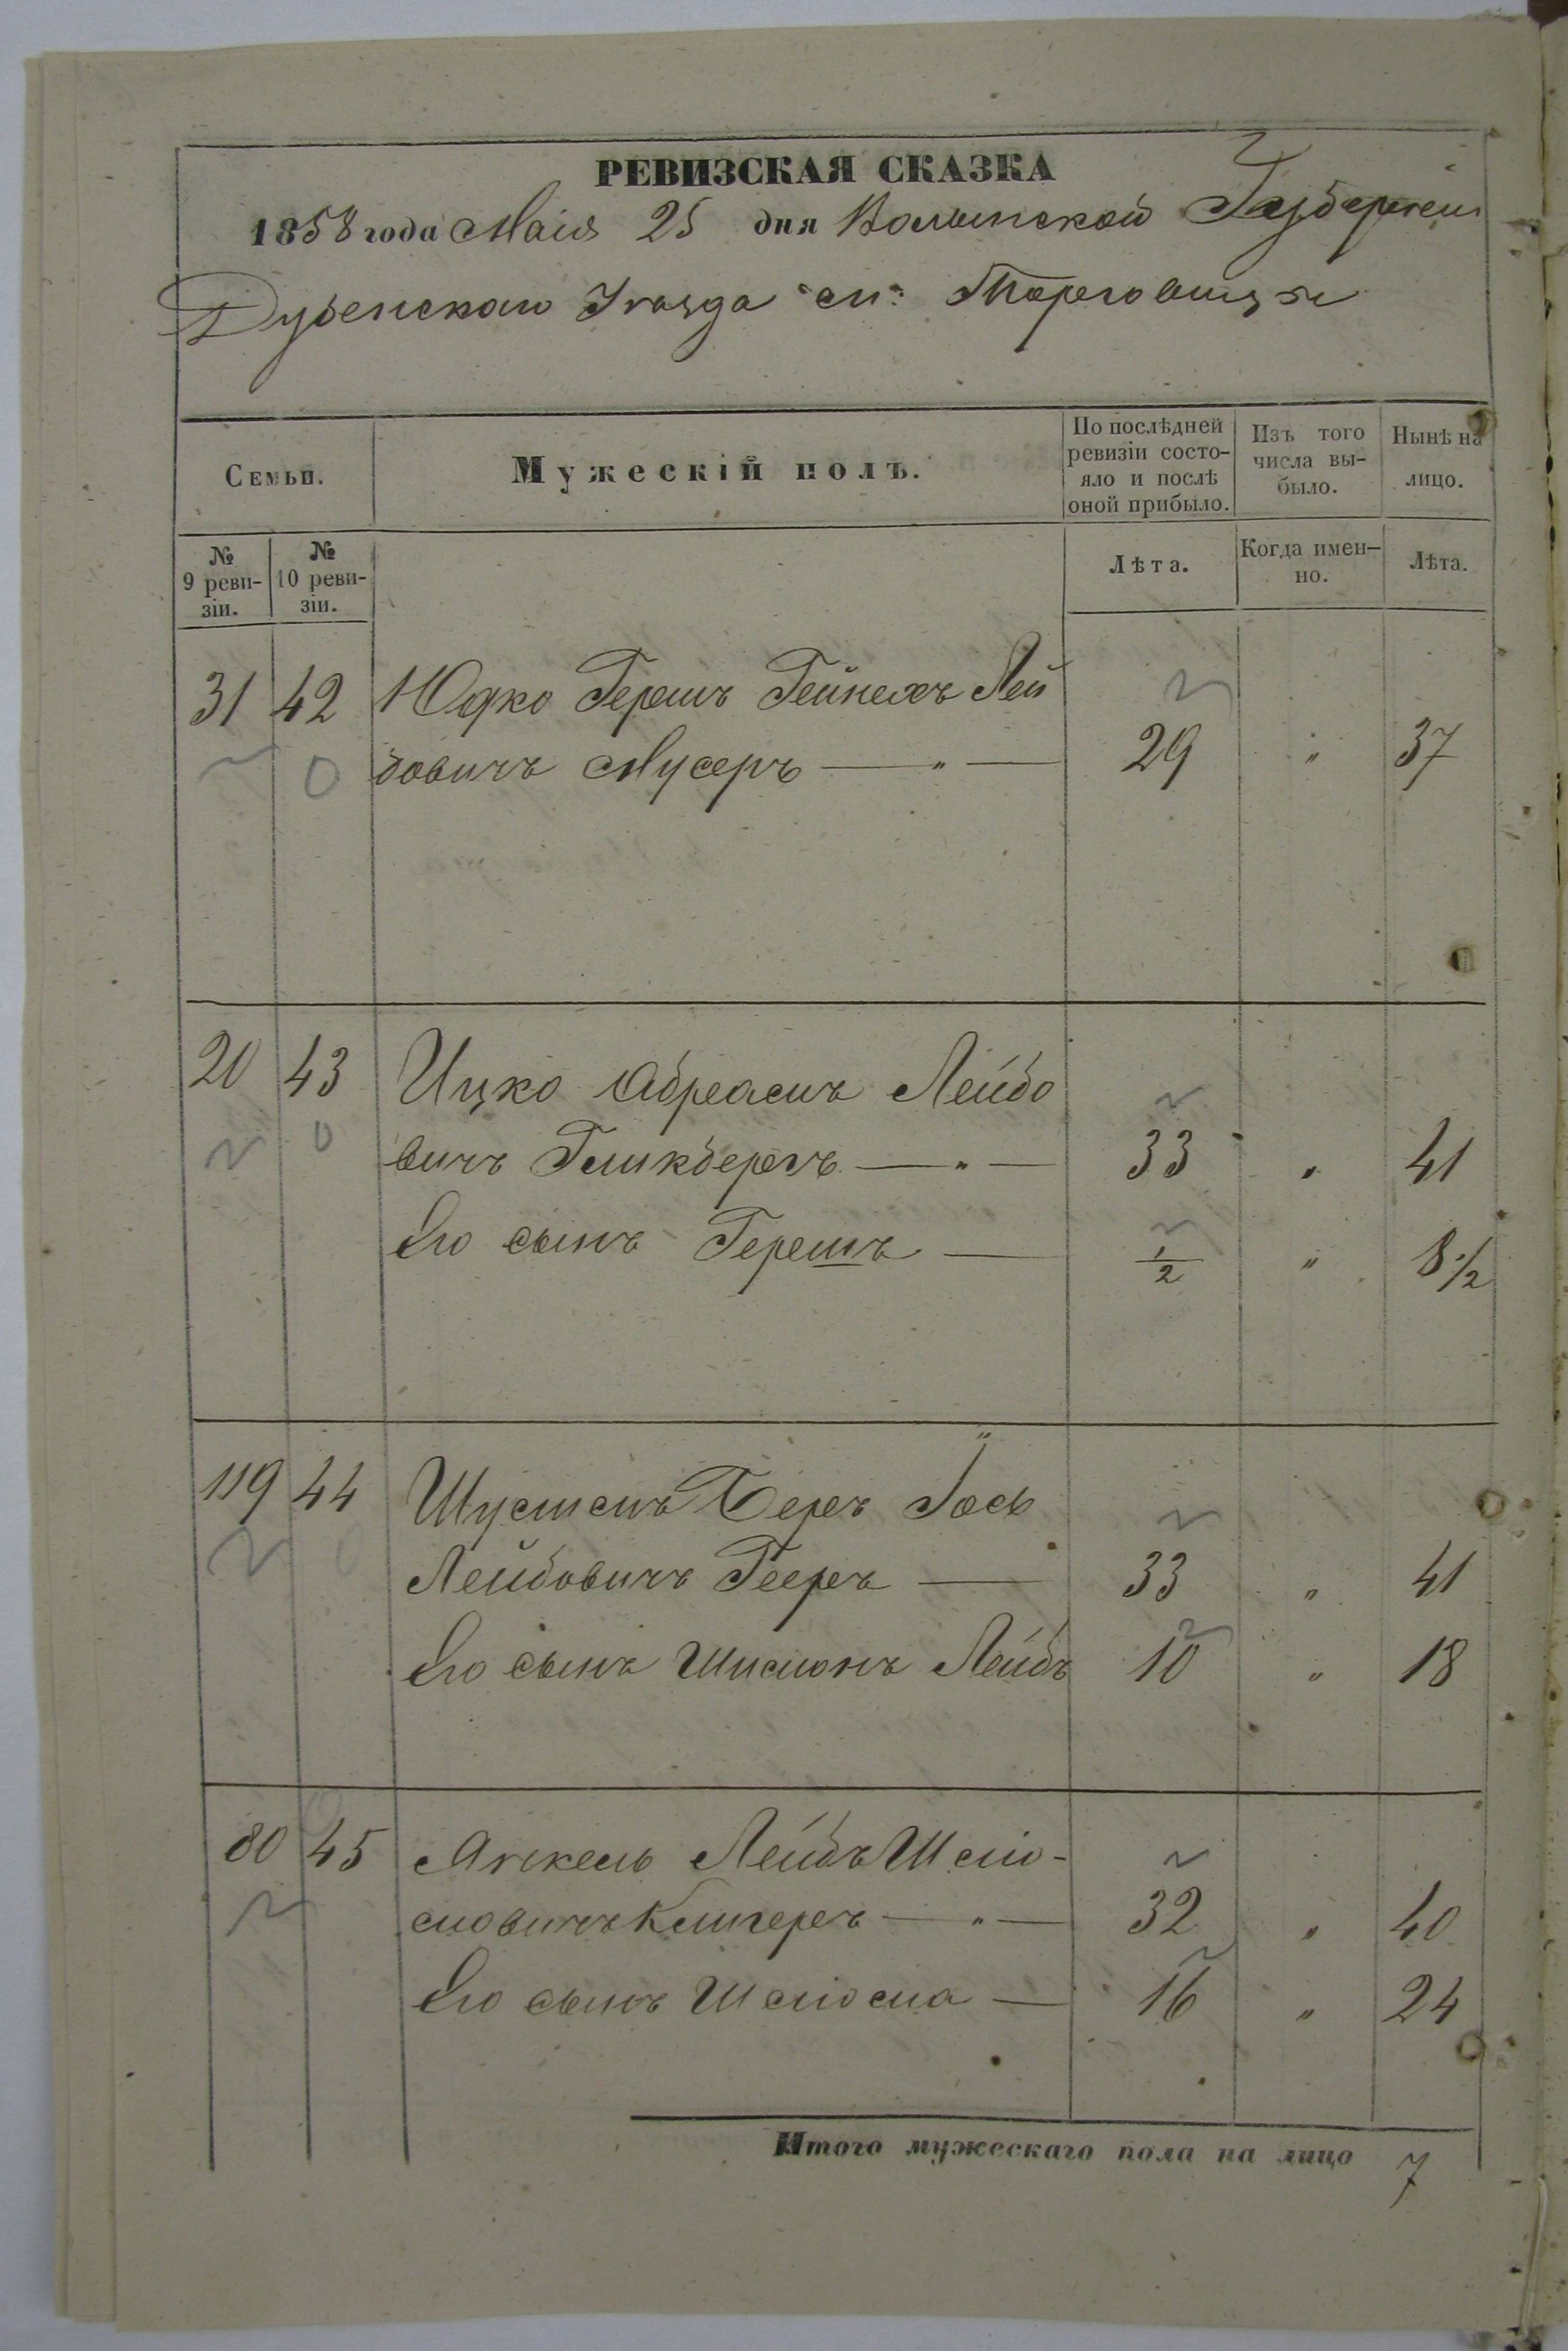 РЕВИЗСКАЯ СКАЗКА
1858 года Маія 25 дня Волынской Губерніи
Дубенскаго Уѣзда м: Торговицы
Семьи. Мужескій полъ. По послѣдней ревизіи состо- яло и послѣ оной прибыло. Изъ того числа вы- было. Нынѣ на лицо.
№ 9 реви- зіи. № 10 реви- зіи. Лѣта. Когда имен- но. Лѣта.
31 42 Юдко Гершъ Гейнехъ Лей
бовичъ Мусеръ — " — 29 " 37
20 43 Ицко Абрамъ Лейбо
вичъ Гликбергъ — " — 33 " 41
Его сынъ Гершъ — 1/2 " 8 1/2
119 44 Беръ Іось
Лейбовичъ — 33 " 41
Его сынъ Шимонъ Лейбъ 10 " 18
80 45 Янкель Лейбъ Шлю-
мовичъ Клигеръ — " — 32 " 40
Его сынъ Шлюма — 16 " 24
Итого мужескаго пола на лицо 7